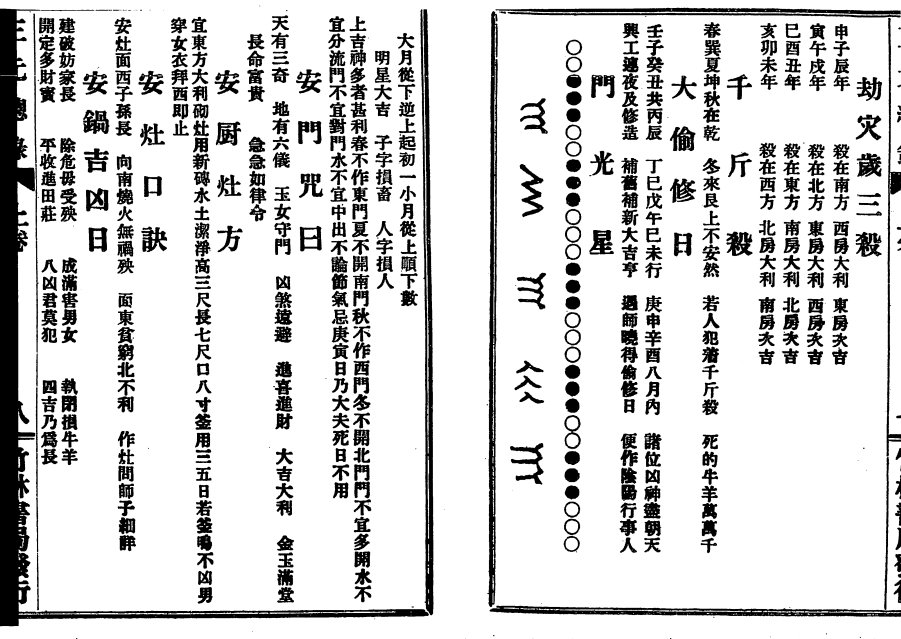 劫灾歲三殺
申子辰年 殺在南方 西房大利 東房次吉
寅午戌年 殺在北方 東房大利 西房次吉
巳酉丑年 殺在東方 南房大利 北房次吉
亥卯未年 殺在西方 北房大利 南房次吉
千斤殺
春巽夏坤秋在乾 冬來艮上不安然 若人犯着千斤殺 死的牛羊萬萬千
大偷修日
壬子癸丑共丙辰 丁巳戊午巳未行 庚申辛酉八月內 諸位凶神盡朝天
興工連夜及修造 補舊補新大吉亨 遇師曉得偷修日 便作陰陽行事人
門光星
○○●●●○○人人人○○○●●○○○○○●●○○○人人人●●○○○
大月從下逆上起初一小月從上順下數
明星大吉 子字損畜 人字損人
上吉神多者甚利春不作東門夏不開南門秋不作西門冬不開北門門不宜多開水不
宜分流門不宜對門水不宜中出不論節氣忌庚寅日乃大夫死日不用
安門咒曰
天有三奇 地有六儀 玉女守門 凶煞遠避 進喜進財 大吉大利 金玉滿堂
長命富貴 急急如律令
安厨灶方
宜東方大利砌灶用新磚水土潔淨高三尺長七尺口八寸釜用三五日若釜鳴不凶男
穿女衣拜西即止
安灶口訣
安灶面西子孫長 向南燒火無禍殃 面東貧窮北不利 作灶問師子細詳
安鍋吉凶日
建破妨家長 除危毋受殃 成滿害男女 執閉損牛羊
開定多財寳 平收進田莊 八凶君莫犯 四吉乃爲長
三元總錄 上卷 八 竹林書局發行